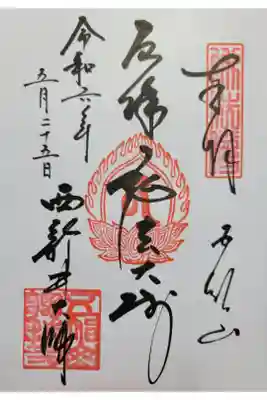 奉拝 五智山
厄除 弘法大師
令和六年
五月二十五日
西新井大師